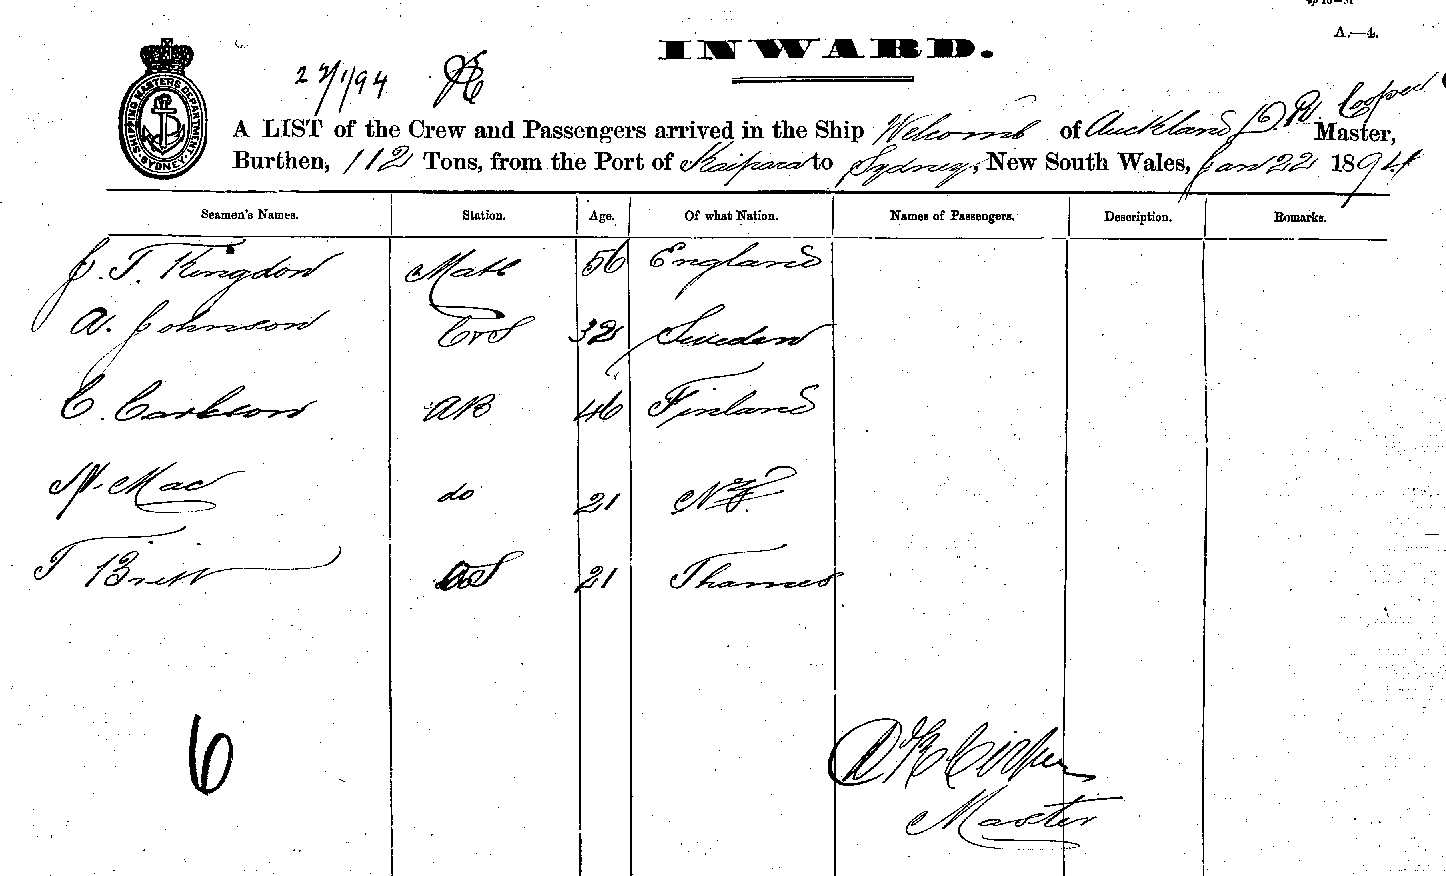 A.—4.
INWARD.
22/1/94
SHIPPING MASTERS DEPARTMENT SYDNEY
A LIST of the Crew and Passengers arrived in the Ship Welcome of Auckland D. W. Cooper Master,
Burthen, 112 Tons, from the Port of Kaipara to Sydney, New South Wales, Jan 22 1894
Seamen's Names. Station. Age. Of what Nation. Names of Passengers. Description. Remarks.
J. T. Kingdon Mate 56 England
A. Johnson C & S 32 Sweden
C. Carlson AB 46 Finland
N. Mac do 21 NZ.
T Britt OS 21 Thames
6
Cooper
Master